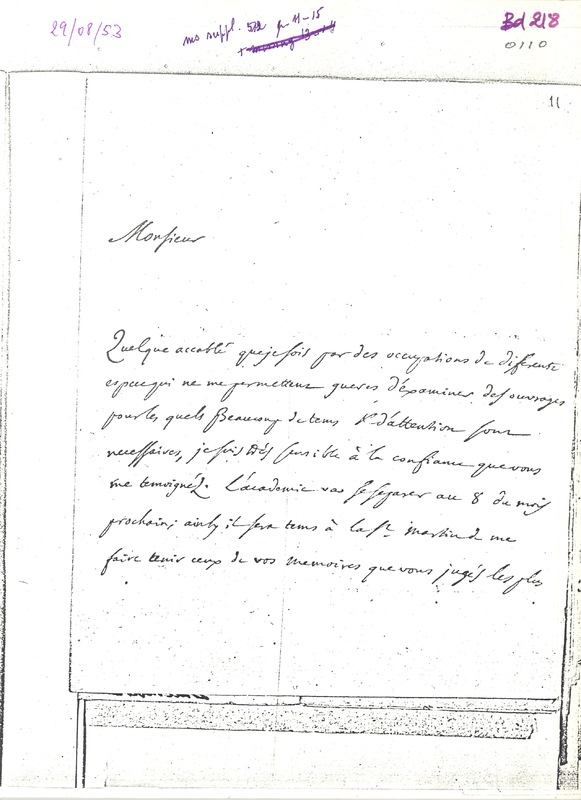 29/08/53
ms suppl. 512 p. 11-15
Bd 218
0110
11
Monsieur
Quelque accablé que je sois par des occupations de differente
espece qui ne me permettent gueres d'examiner des ouvrages
pour les quels Beaucoup de tems & d'attention sont
necessaires, je suis tres sensible à la confiance que vous
me temoignéz. L'academie vas se separer au 8 du mois
prochain; ainsy il sera tems à la St. martin de me
faire tenir ceux de vos memoires que vous jugés les plus